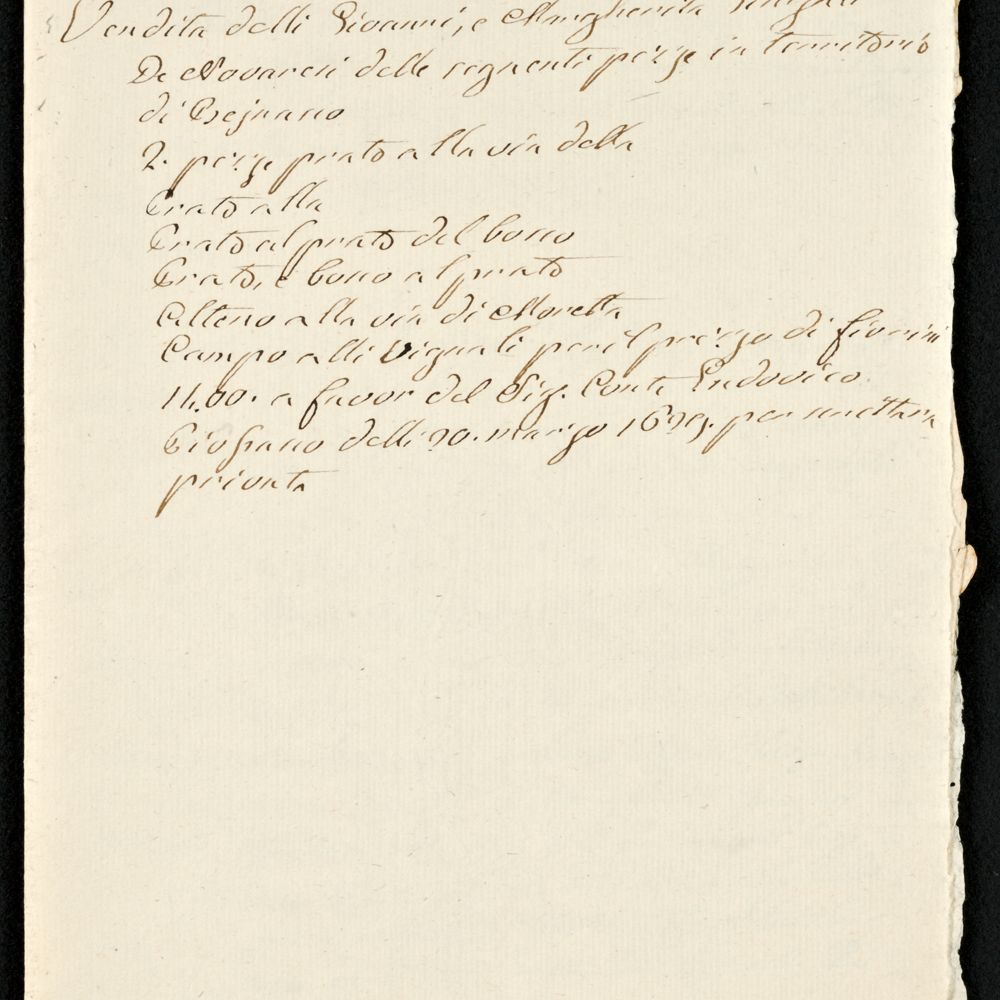 Vendita delli Giovanni, e Margherita
De Novaresi delle seguenti pezze in territorio
di
2. pezze prato alla via della
Prato alla
Prato al prato del bosco
Prato, e bosco al prato
Alteno alla via di Moretta
Campo alli Vignali per il prezzo di fiorini
1400. a favor del Sig. Conte Ludovico
delli 20. marzo per scrittura
privata